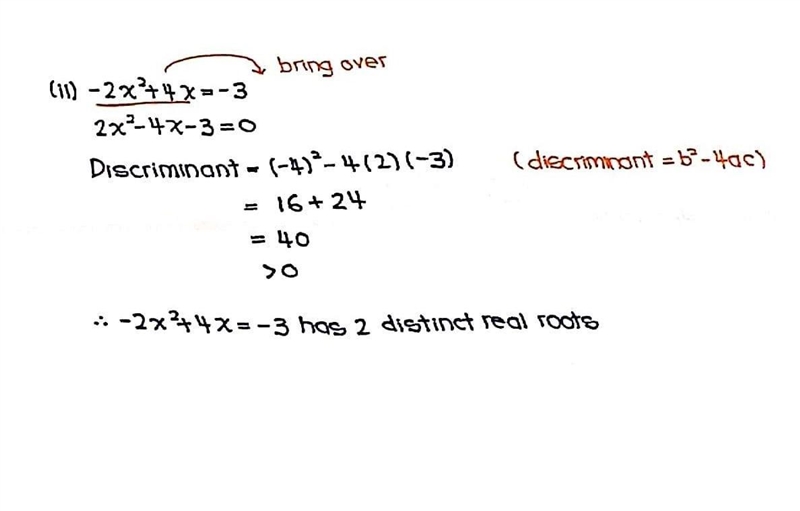 bring over
(ii) -2x²+4x=-3
2x²-4x-3=0
Discriminant = (-4)²-4(2)(-3) (discriminant = b²-4ac)
= 16+24
= 40
>0
∴ -2x²+4x=-3 has 2 distinct real roots